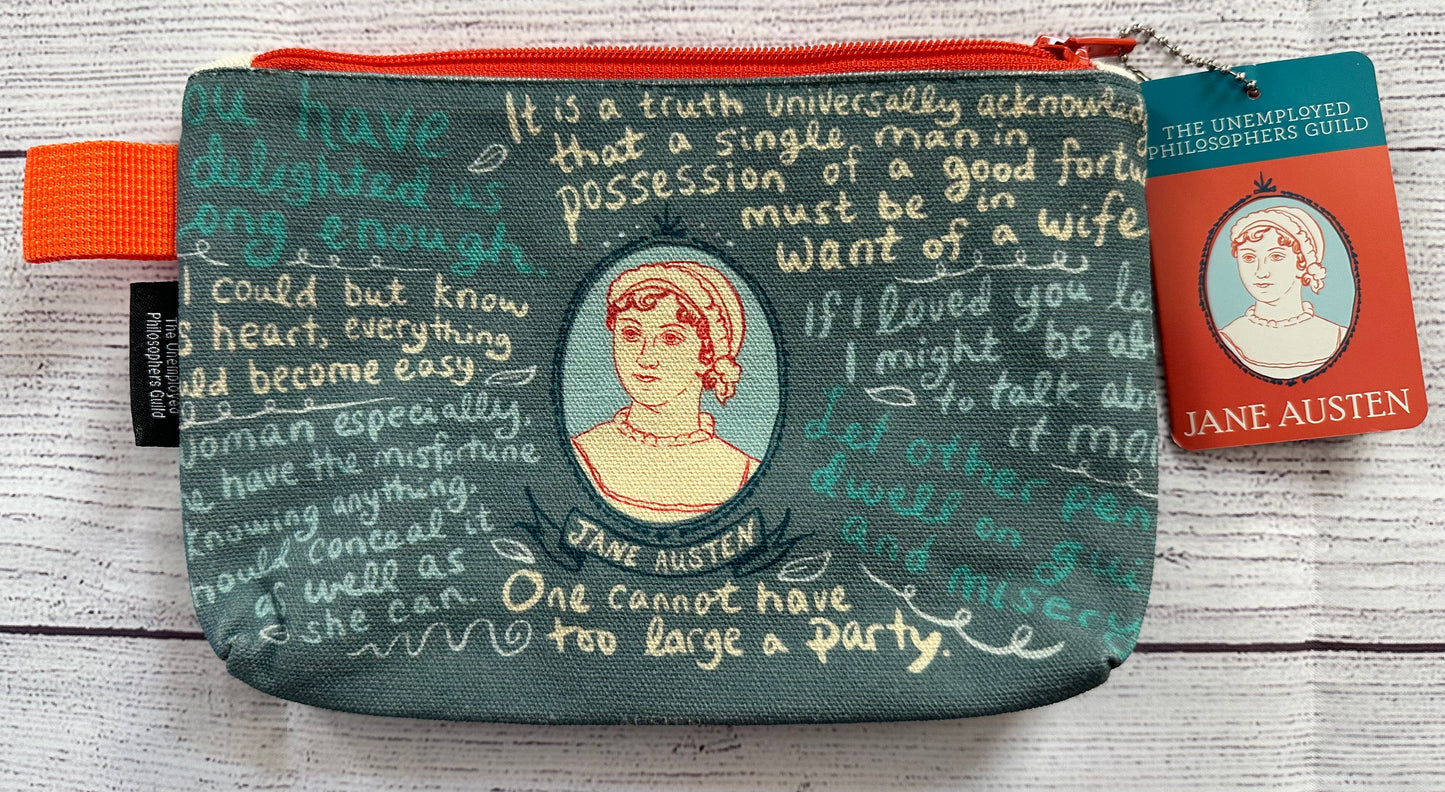 ou have
delighted us
long enough.
It is a truth universally acknowledg
that a single man in
possession of a good fortu
must be in
want of a wife
I could but know
s heart, everything
uld become easy
If I loved you le
I might be ab
to talk abo
it mor
woman especially
e have the misfortune
knowing anything,
hould conceal it
as well as
she can.
Let other pen
dwell on gui
and misery
JANE AUSTEN
One cannot have
too large a party.
The Unemployed
Philosophers Guild
THE UNEMPLOYED
PHILOSOPHERS GUILD
JANE AUSTEN